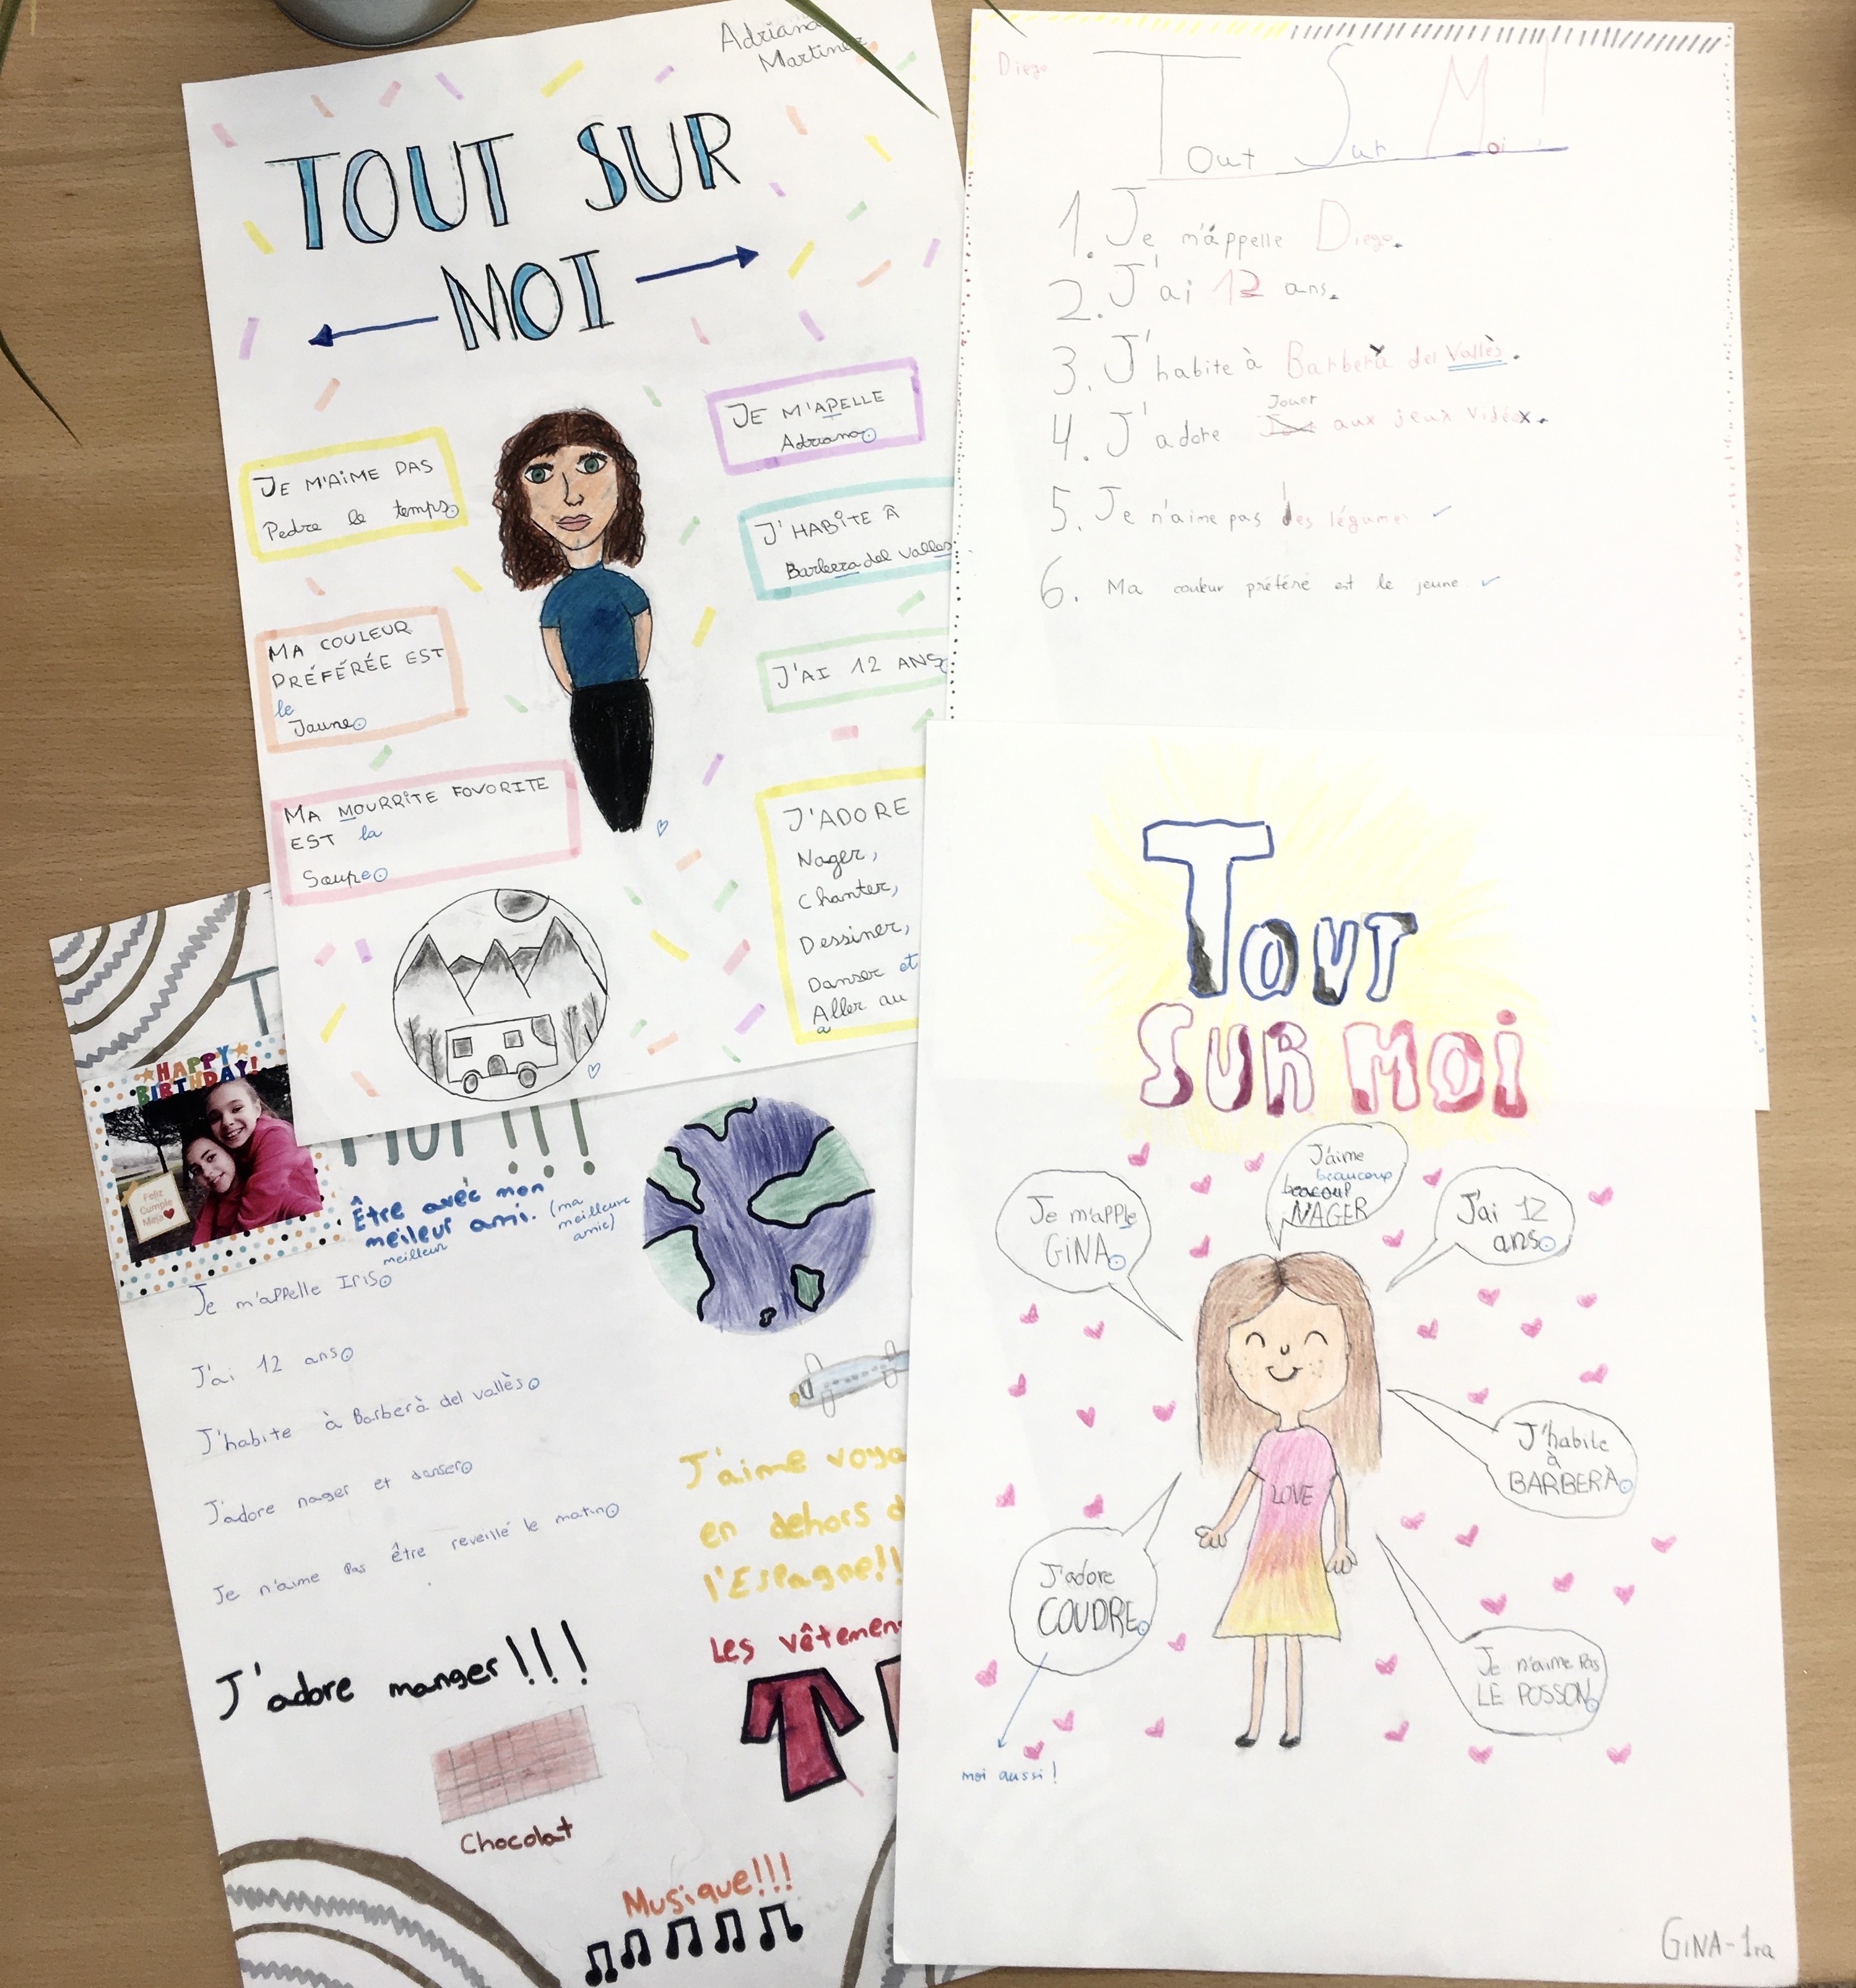 Adriana
Martinez
TOUT SUR
MOI
JE M'AIME PAS
Pedre le temps
MA COULEUR
PRÉFÉRÉE EST
le
Jaune
MA MOURRITE FOVORITE
EST la
Soupe
JE M'APELLE
Adriana
J'HABITE À
Barbera del Valles
J'AI 12 ANS
J'ADORE
Nager,
Chanter,
Dessiner,
Danser et
Aller au
a
Diego
Tout Sur Moi!
1. Je m'appelle Diego.
2. J'ai 12 ans.
3. J'habite à Barberà del Vallès.
Jouer
4. J'adore aux jeux vidéox.
5. Je n'aime pas les légumes
6. Ma couleur préféré est le jeune
HAPPY
BIRTHDAY!
Feliz
Cumple
Meja
MOI!!!
Être avec mon
meileur ami. (ma
meilleure
amie)
meilleur
Je m'appelle Iris
J'ai 12 ans
J'habite à Barberà del vallès
J'adore nager et danser
Je n'aime pas être reveillé le matin
J'adore manger!!!
Chocolat
Musique!!!
J'aime voya
en dehors d
l'Espagne!!
Les vêtemen
TOUT
SUR MOI
Je m'apple
GINA
J'aime
beaucoup
beacoup
NAGER
J'ai 12
ans
J'habite
à
BARBERÀ
J'adore
COUDRE
Je n'aime Pas
LE POSSON
LOVE
moi aussi!
GINA-1ra